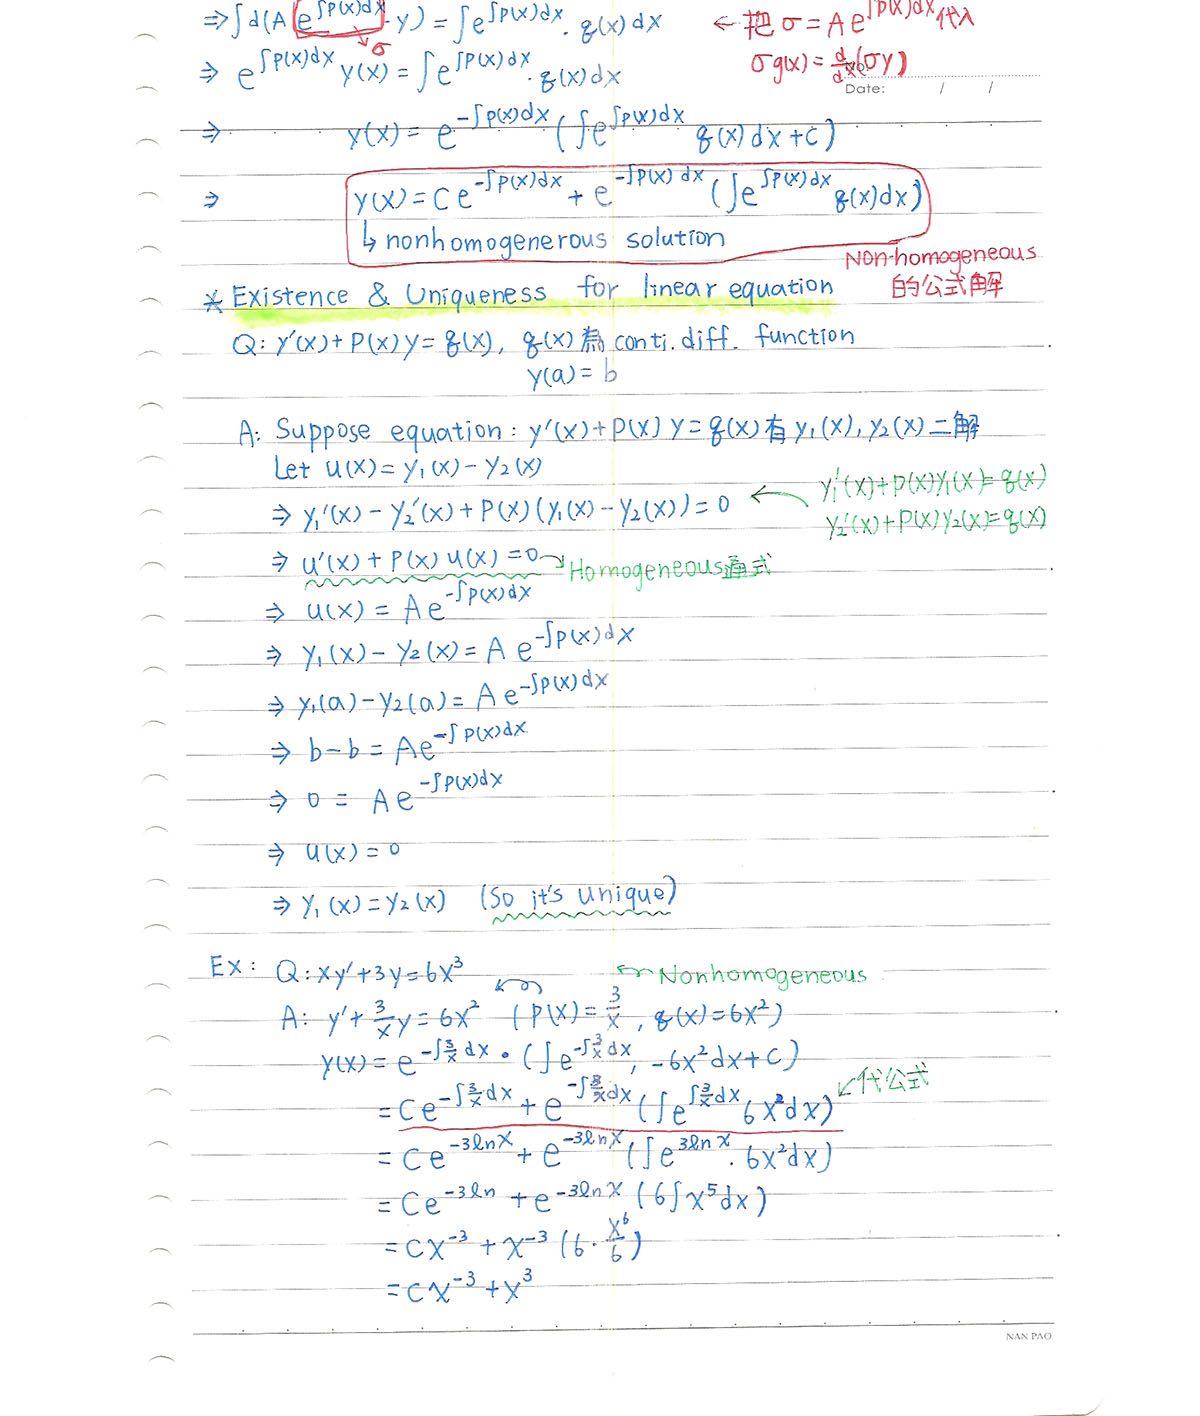 ⇒∫d(A e^{∫P(x)dx} y) = ∫e^{∫P(x)dx}·q(x)dx ← 把σ=Ae^{∫P(x)dx}代入
↘σ
⇒ e^{∫P(x)dx} y(x) = ∫e^{∫P(x)dx}·q(x)dx σq(x)=d/dx(σy)
Date: / /
⇒ y(x) = e^{-∫P(x)dx} (∫e^{∫P(x)dx} q(x)dx+C)
⇒ y(x) = Ce^{-∫P(x)dx} + e^{-∫P(x)dx} (∫e^{∫P(x)dx} q(x)dx)
↳ nonhomogenerous solution
Non-homogeneous
的公式解
* Existence & Uniqueness for linear equation
Q: y'(x)+P(x)y=q(x), q(x)為 conti. diff. function
y(a)=b
A: Suppose equation: y'(x)+P(x)y=q(x)有y₁(x), y₂(x)二解
Let u(x)=y₁(x)-y₂(x)
⇒ y₁'(x)-y₂'(x)+P(x)(y₁(x)-y₂(x))=0 ← y₁'(x)+P(x)y₁(x)=q(x)
y₂'(x)+P(x)y₂(x)=q(x)
⇒ u'(x)+P(x)u(x)=0 → Homogeneous通式
⇒ u(x)=Ae^{-∫P(x)dx}
⇒ y₁(x)-y₂(x)=Ae^{-∫P(x)dx}
⇒ y₁(a)-y₂(a)=Ae^{-∫P(x)dx}
⇒ b-b=Ae^{-∫P(x)dx}
⇒ 0=Ae^{-∫P(x)dx}
⇒ u(x)=0
⇒ y₁(x)=y₂(x) (So it's unique)
Ex: Q: xy'+3y=6x³
← Nonhomogeneous
A: y'+3/x y=6x² (P(x)=3/x, q(x)=6x²)
y(x)=e^{-∫3/x dx}·(∫e^{-∫3/x dx}, -6x²dx+C)
=Ce^{-∫3/x dx}+e^{-∫3/x dx}(∫e^{∫3/x dx} 6x²dx) ↙代公式
=Ce^{-3lnx}+e^{-3lnx}(∫e^{3lnx}·6x²dx)
=Ce^{-3ln}+e^{-3lnx}(6∫x⁵dx)
=Cx⁻³+x⁻³(6·x⁶/6)
=Cx⁻³+x³
NAN PAO